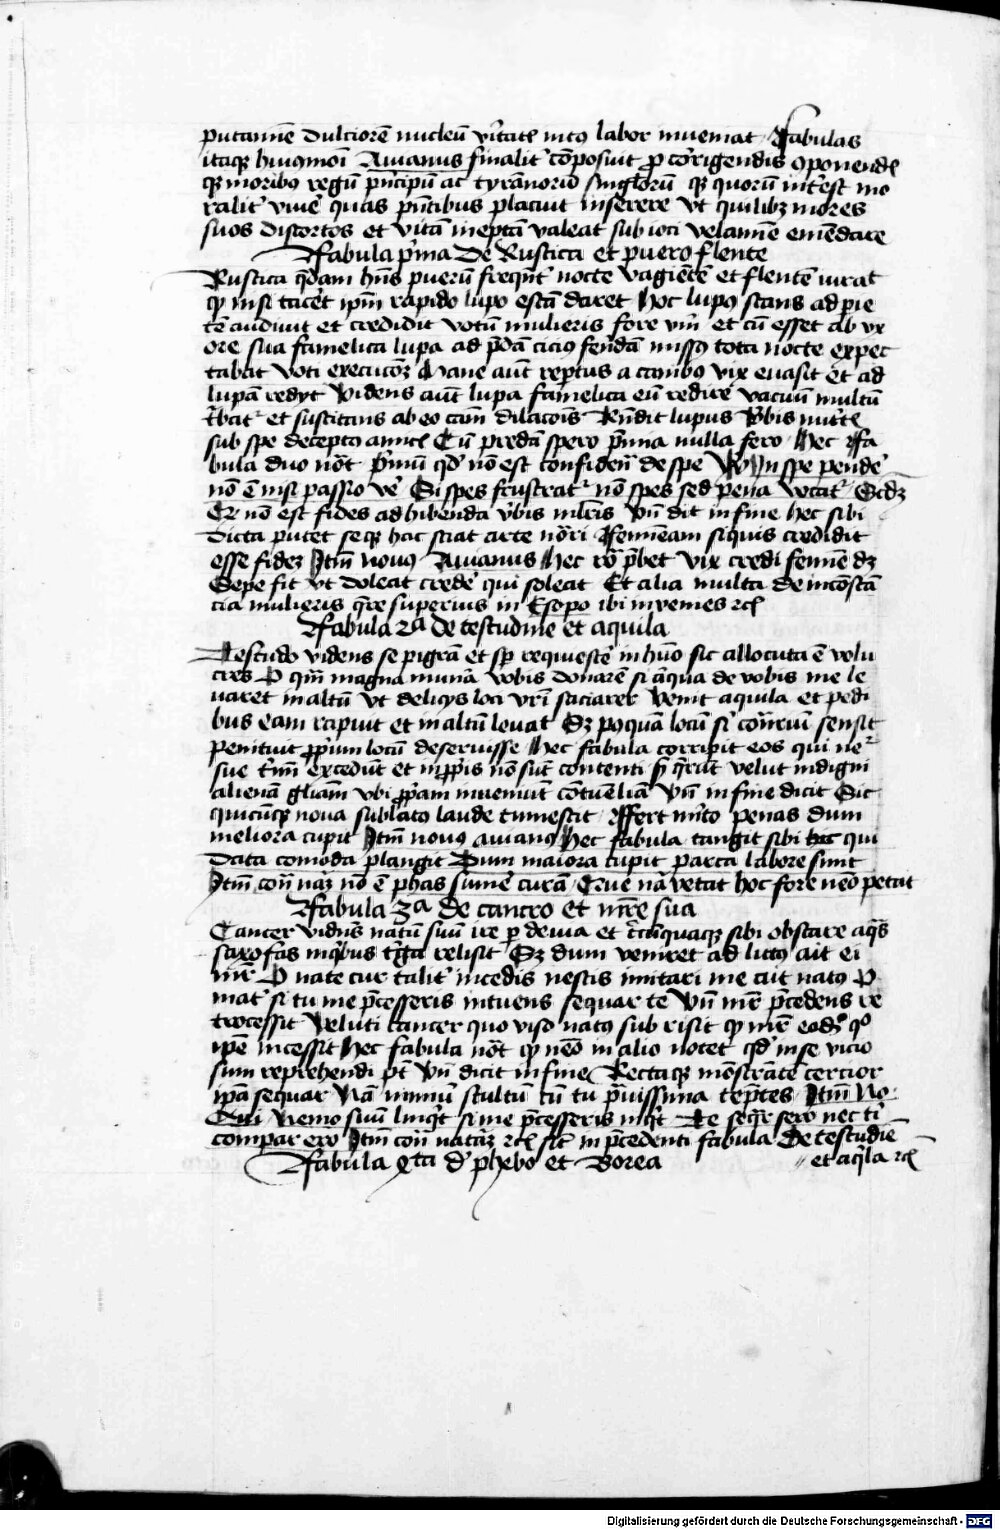 putamine dulciorē nucleū v̓itatꝭ intꝯ labor inveniat Fabulas
itaqꝫ hui9moi Avianus finalit̓ cōposuit p corrigendis 9ponendꝭ
qꝫ moribꝯ regū pn̓cipū ac tyrānorū singlorū qꝫ quorū int̓est mo
ralit̓ vive̓ quas pn̓cibus placuit inserere vt quilibꝫ mores
suos distortos et vitā ineptā valeat sub ioci velamīe emēdare
Fabula p̓ma De Rustica et puero flente
Rustica qd̄am hn̄s puerū freqn̄t̓ nocte vagientē et flentē iurat
ꝙ nisi tacet̓ ipm̄ rapido lupo escā daret hoc lupꝯ stans ad parie
tē audivit et credidit votū mulieris fore v̓m et cū esset ab vx
ore sua famelica lupa ad p̄dā ciciꝯ ferēdā missꝯ tota nocte expec
tabat voti execucōꝫ Mane aūt rep̓tus a canibꝯ vix evasit et ad
lupā redyt Videns aūt lupa famelica eū redire vacuū multū
t̓bat᷑ et suscitans ab eo cām dilacōis Rn̄dit lupus v̓bis mulierꝭ
sub spe deceptꝯ amicꝭ Cū predā spero p̓mia nulla fero Hec fa
bula duo not̄ P̓mū qd̓ nō est confidend̄ de spe Vn̄ In spe pende̓
nō ē nisi passio ve̓ Si spes frustrat᷑ nō spes sed pena vocat᷑ Scd̄ꝫ
Qr nō est fides adhibenda v̓bis mlr̄is Vn̄ dit in fine Hec sibi
dicta putet seqꝫ hac sciat arte not̄ri Femineam siquis credidit
esse fidēꝫ Itm̄ novꝯ Avianus Hec rō p̓bet vix credi femīe dꝫ
Sepe fit vt doleat crede̓ qui soleat Et alia multa de incōstā
cia mulieris qr̄e superius in Esopo ibi invenies rc̄
Fabula 2ᵃ de testudine et aquila
Testudo videns se pigrā et sp̄ requiescē in huō sic allocuta ē volu
cres O qm̄ magna munā vobis donarem si aliqua de vobis me le
varet in altū vt delicijs loci vr̄i saciarer Venit aquila et pedi
bus eam rapuit et in altū levat Sꝫ poquā locū sī cōtr̄iū sensit
penituit pp̓ium locū deseruisse Hec fabula corripit eos qui ne᷑
sue t̓mm̄ excedūt et in pp̓is nō sūt contenti sꝫ qr̄ūt velut indigni
alienā gliam vbi pp̓am inveniūt cōtumeliā Vn̄ in fine dicit Sic
quicūqꝫ nova sublatꝯ laude tumescit Affert mito penas dum
meliora cupit Itm̄ novꝯ avianꝯ Hec fabula tangit sibi qui
data comoda plangit Dum maiora cupit parta labore sinit
Itm̄ con̄ nāꝫ nō ē phas sume̓ curā Que nā vetat hoc fore nēo petat
Fabula 3ᵃ de cancro et mr̄e sua
Cancer vidn̄s natū suū ire p devia et t̓unquaqꝫ sibi obstare aq̄s
saxosas in qibus t̓ga relisit Sꝫ dum veniret ad litꝯ ait ei
mr̄ O nate cur talit̓ incedis nescis imitari me ait natꝯ O
mat̓ si tu me p̓cesseris intuens sequar te Vn̄ mr̄ p̓cedens re
trocessit Veluti cancer quo viso natꝯ subrisit ꝙ mr̄ eodē qͦ
ipē incessit Hec fabula not̄ ꝙ nēo in alio notet qd̓ in se vicio
sum reprehendi pt̄ Vn̄ dicit in fine Rectaqꝫ mōstrāte certior
ipā sequar Nā nimiū stultū cū tu p̓vissima temptes Itm̄ No
Avi Nemo suū linqt̓ si me p̓cesseris inqt̓ Te seqr̓ sero nec ti
compar ero Itm̄ con̄ natāꝫ rc̄ sic in p̓cedenti fabula De testudīe
Fabula qᵗᵃ d̓ phebo et Borea // et aqīla rc̄
Digitalisierung gefördert durch die Deutsche Forschungsgemeinschaft - DFG